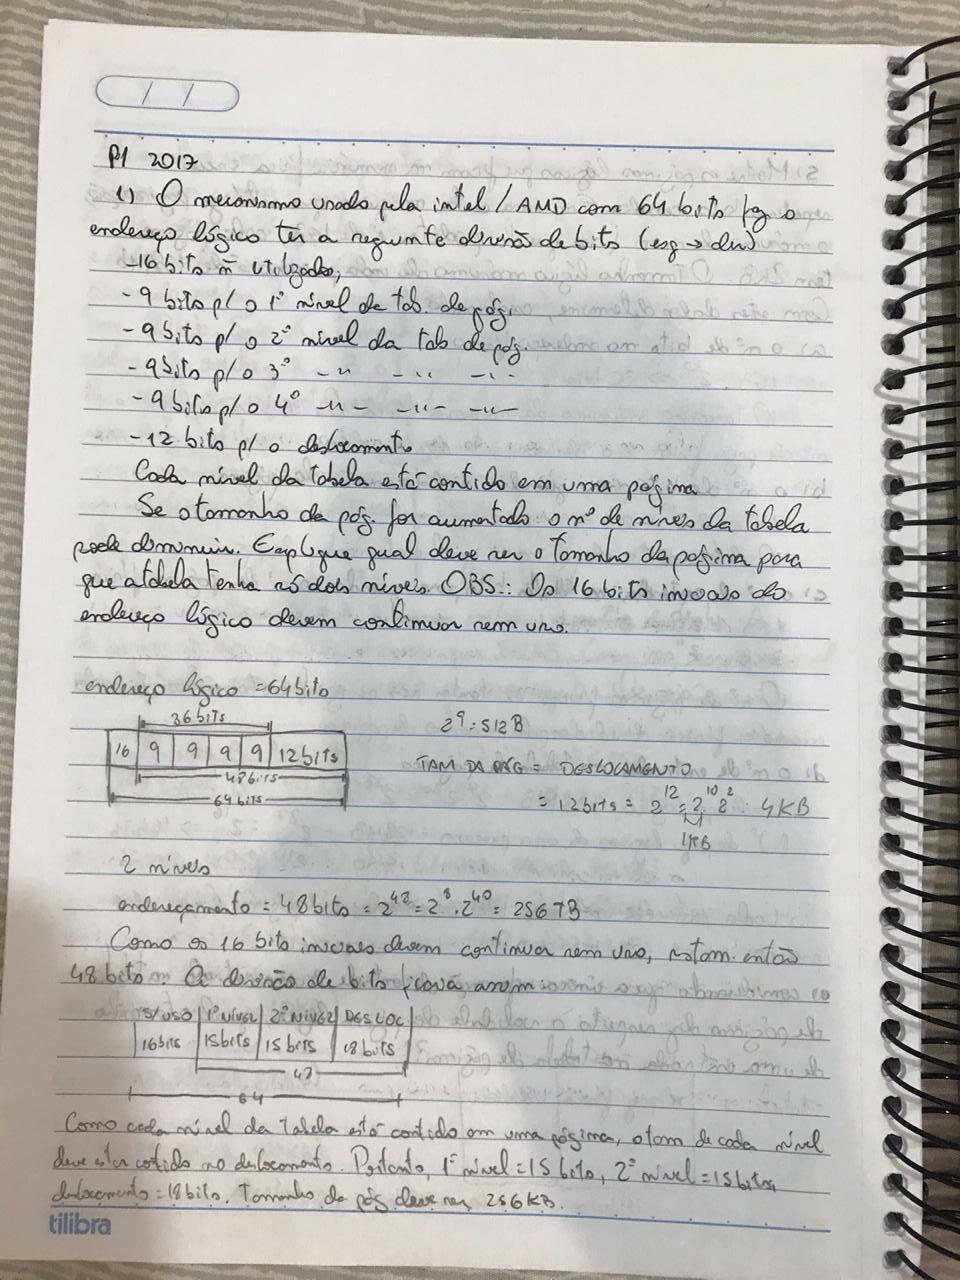 P1 2017
1) O mecanismo usado pela intel/AMD com 64 bits faz o
endereço lógico ter a seguinte divisão de bits (esq → dir)
-16 bits ñ utilizados,
- 9 bits p/ o 1º nível de tab. de pág.
- 9 bits p/ o 2º nível da tab de pág
- 9 bits p/ o 3º -"- -"- -"-
- 9 bits p/ o 4º -"- -"- -"-
- 12 bits p/ o deslocamento
Cada nível da tabela está contido em uma página
Se o tamanho da pág. for aumentado o nº de níveis da tabela
pode diminuir. Explique qual deve ser o tamanho da página para
que a tabela tenha só dois níveis. OBS.: Os 16 bits iniciais do
endereço lógico devem continuar sem uso.
endereço lógico = 64 bits
36 bits
16 9 9 9 9 12 bits
48 bits
64 bits
2^9 = 512 B
TAM DA PÁG = DESLOCAMENTO
= 12 bits = 2^12 = 2^10 2^2 = 4KB
1KB
2 níveis
endereçamento = 48 bits = 2^48 = 2^8 . 2^40 = 256 TB
Como os 16 bits iniciais devem continuar sem uso, restam então
48 bits. A divisão de bits ficará assim
S/USO 1º NÍVEL 2º NÍVEL DESLOC
16 bits 15 bits 15 bits 18 bits
64
Como cada nível da tabela está contido em uma página, o tam de cada nível
deve estar contido no deslocamento. Portanto, 1º nível = 15 bits, 2º nível = 15 bits,
deslocamento = 18 bits. Tamanho da pág deve ser 256 KB.
tilibra